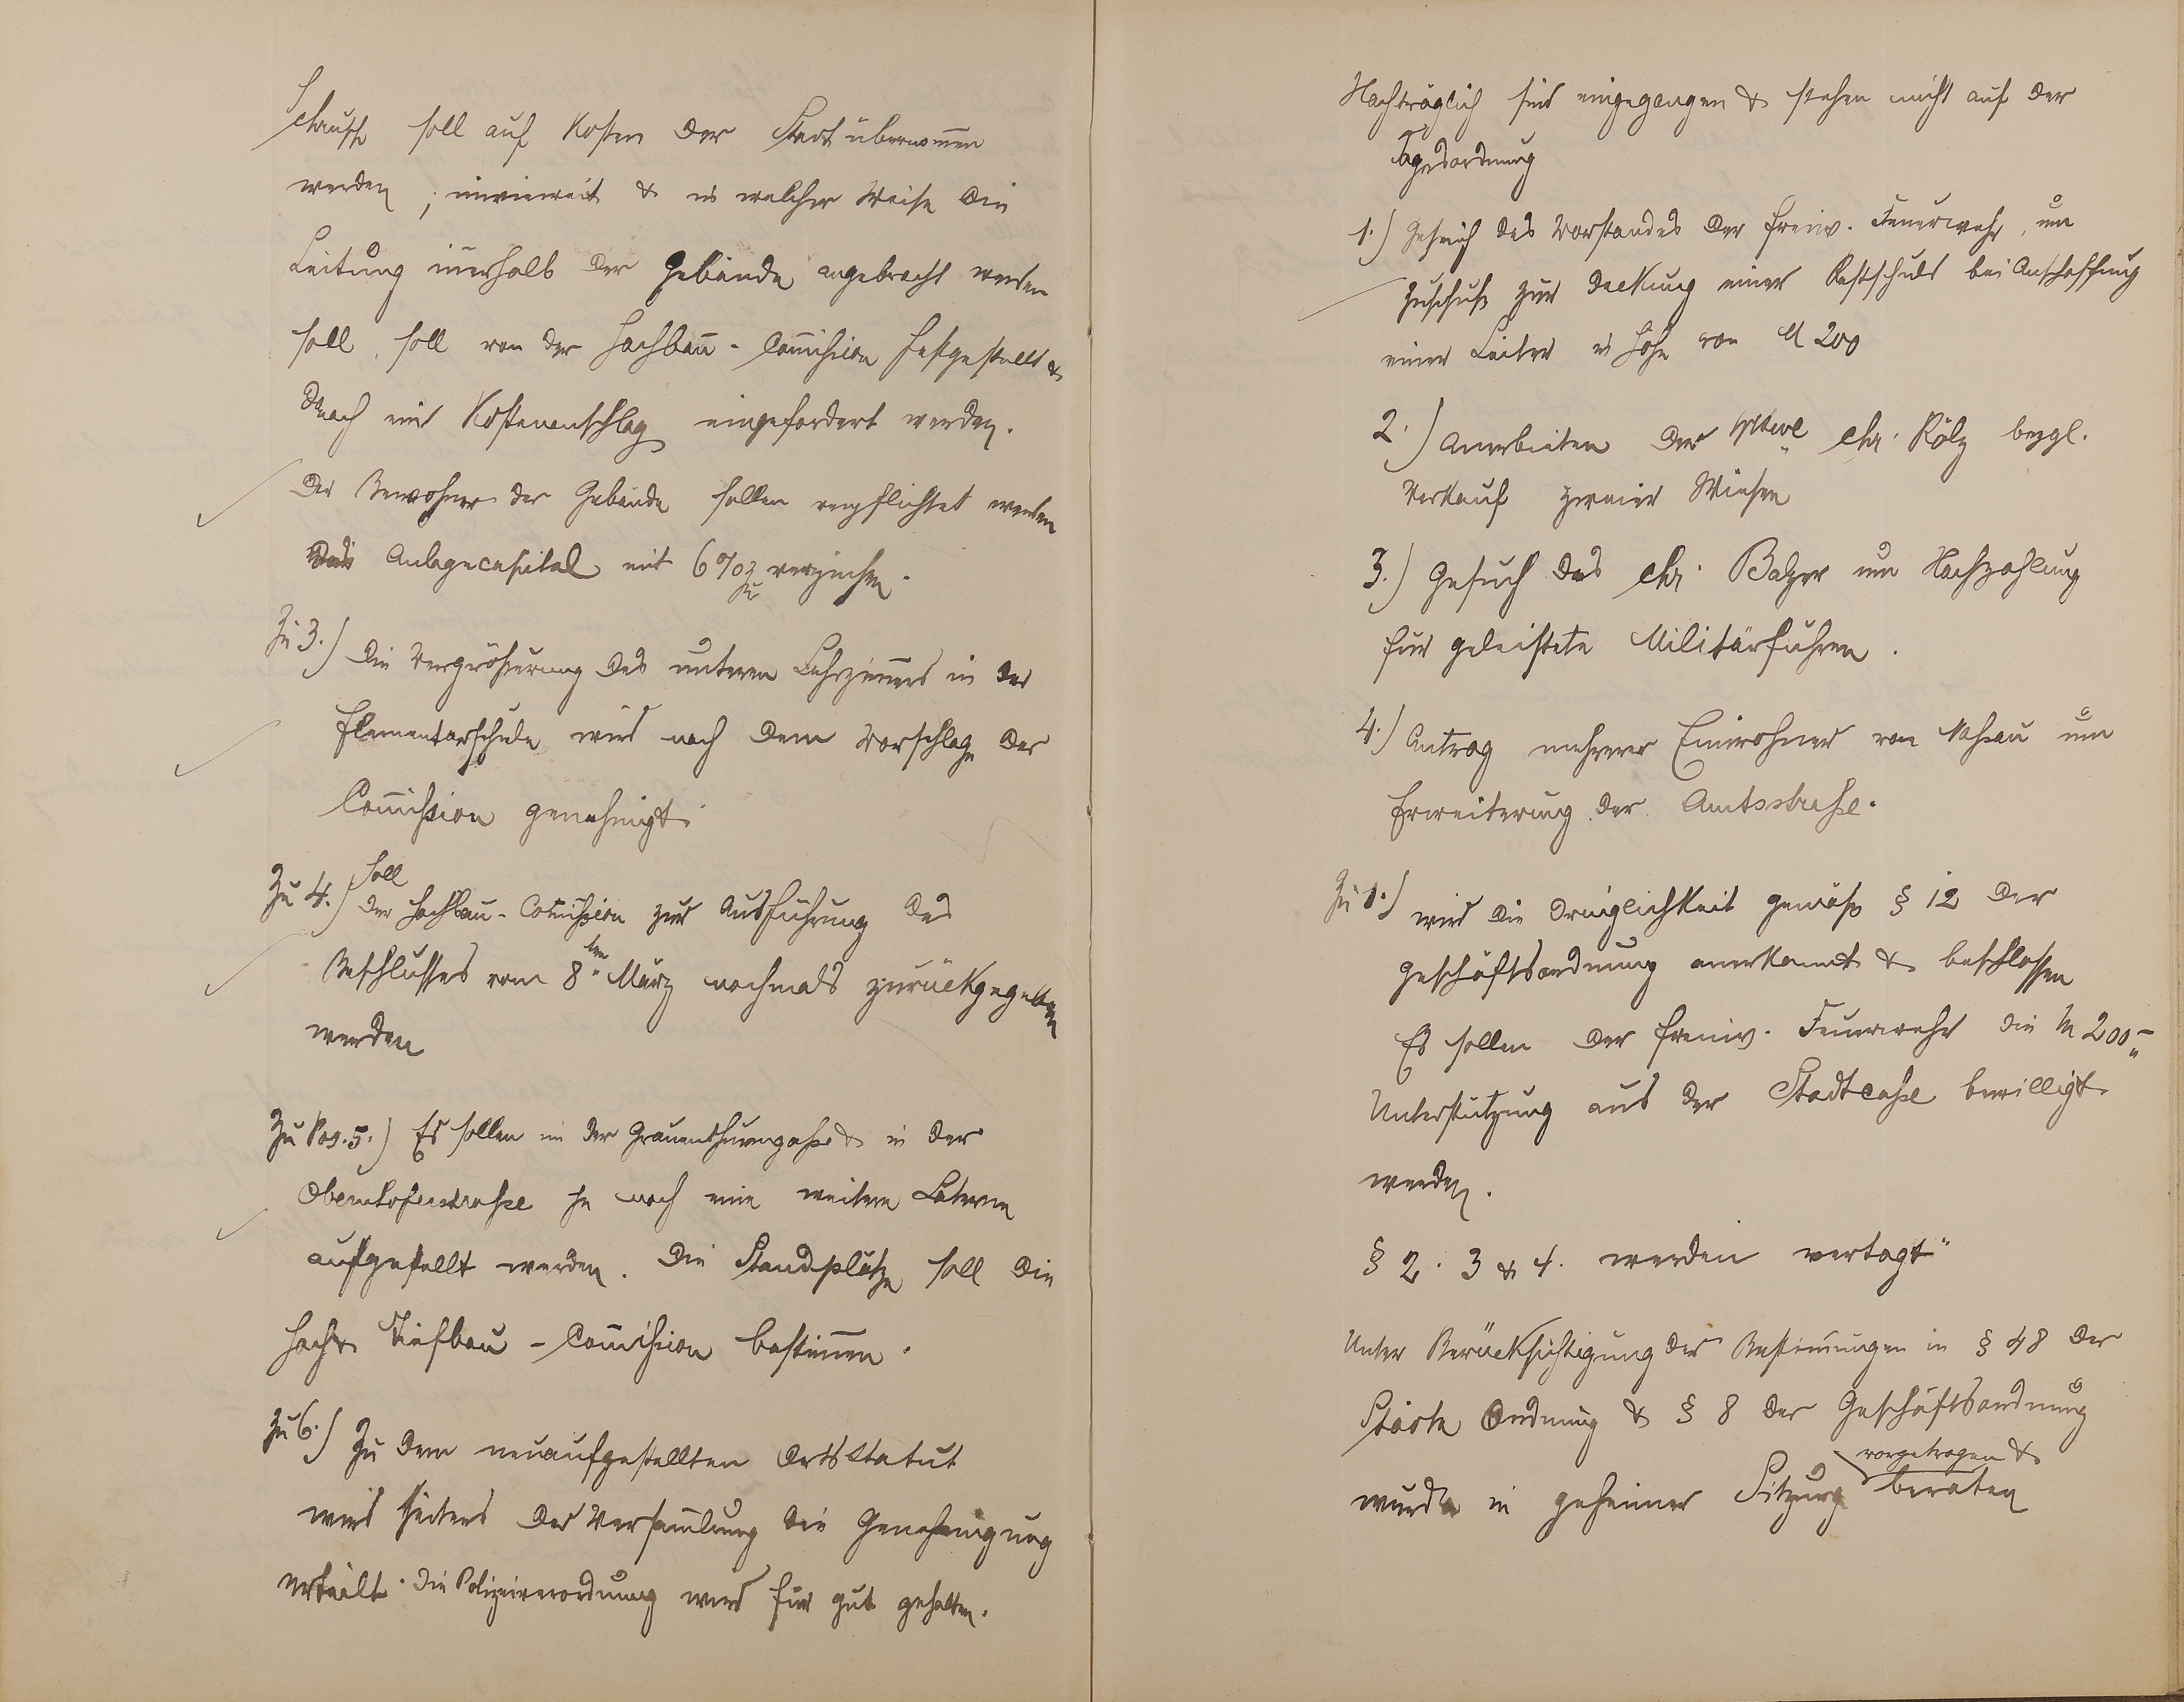 soll auf Kosten der Stadt übernom̅en
werden; inwieweit & in welcher Weise die
Leitung in̅erhalb der Gebäude angebracht werden
soll, soll von der Hochbau-Com̅ißion festgestellt &
danach ein Kostenanschlag eingefordert werden.
Die Bewohner der Gebäude sollen verpflichtet werden
das Anlagecapital mit 6% zu verzinsen.
Zu 3.) Die Vergrößerung des unteren Lehrzim̅ers in der
Elementarschule wird nach dem Vorschlage der
Com̅ißion genehmigt.
Zu 4.) soll der Hochbau-Com̅ißion zur Ausführung des
Beschlusses vom 8ten März nochmals zurückgegeben
werden
Zu Pos. 5.) Es sollen in der Grauenthurmgaße & in der
Obernhoferstraße je noch eine weitere Laterne
aufgestellt werden. Die Standplätze soll die
Hoch & Tiefbau-Com̅ißion bestim̅en.
Zu 6.) Zu dem neuaufgestellten Ortsstatut
wird seitens der Versam̅lung die Genehmigung
erteilt. Die Polizeiverordnung wird für gut gehalten.
Nachträglich sind eingegangen & stehen nicht auf der
Tagesordnung
1.) Gesuch des Vorstandes der freiw. Feuerwehr, um
Zuschuß zur Deckung einer Restschuld bei Anschaffung
einer Leiter in Höhe von M 200
2.) Anerbieten der Wittwe Chr. Kölz bezgl.
Verkauf zweier Wiesen
3.) Gesuch des Chr. Balzer um Nachzahlung
für geleistete Militärfuhren.
4.) Antrag mehrerer Einwohner von Naßau um
Erweiterung der Amtsstraße.
Zu 1.) wird die Dringlichkeit gemäß § 12 der
Geschäftsordnung anerkannt & beschlossen
Es sollen der freiw. Feuerwehr die M 200.-
Unterstützung aus der Stadtcaße bewilligt
werden.
§ 2. 3 & 4. werden vertagt"
Unter Berücksichtigung der Bestim̅ungen in § 48 der
Städte Ordnung & § 8 der Geschäftsordnung
wurde in geheimer Sitzung vorgetragen & beraten